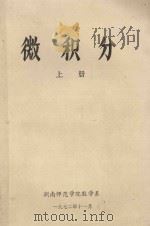 微积分
上册
湖南师范学院数学系
一九七二年十一月